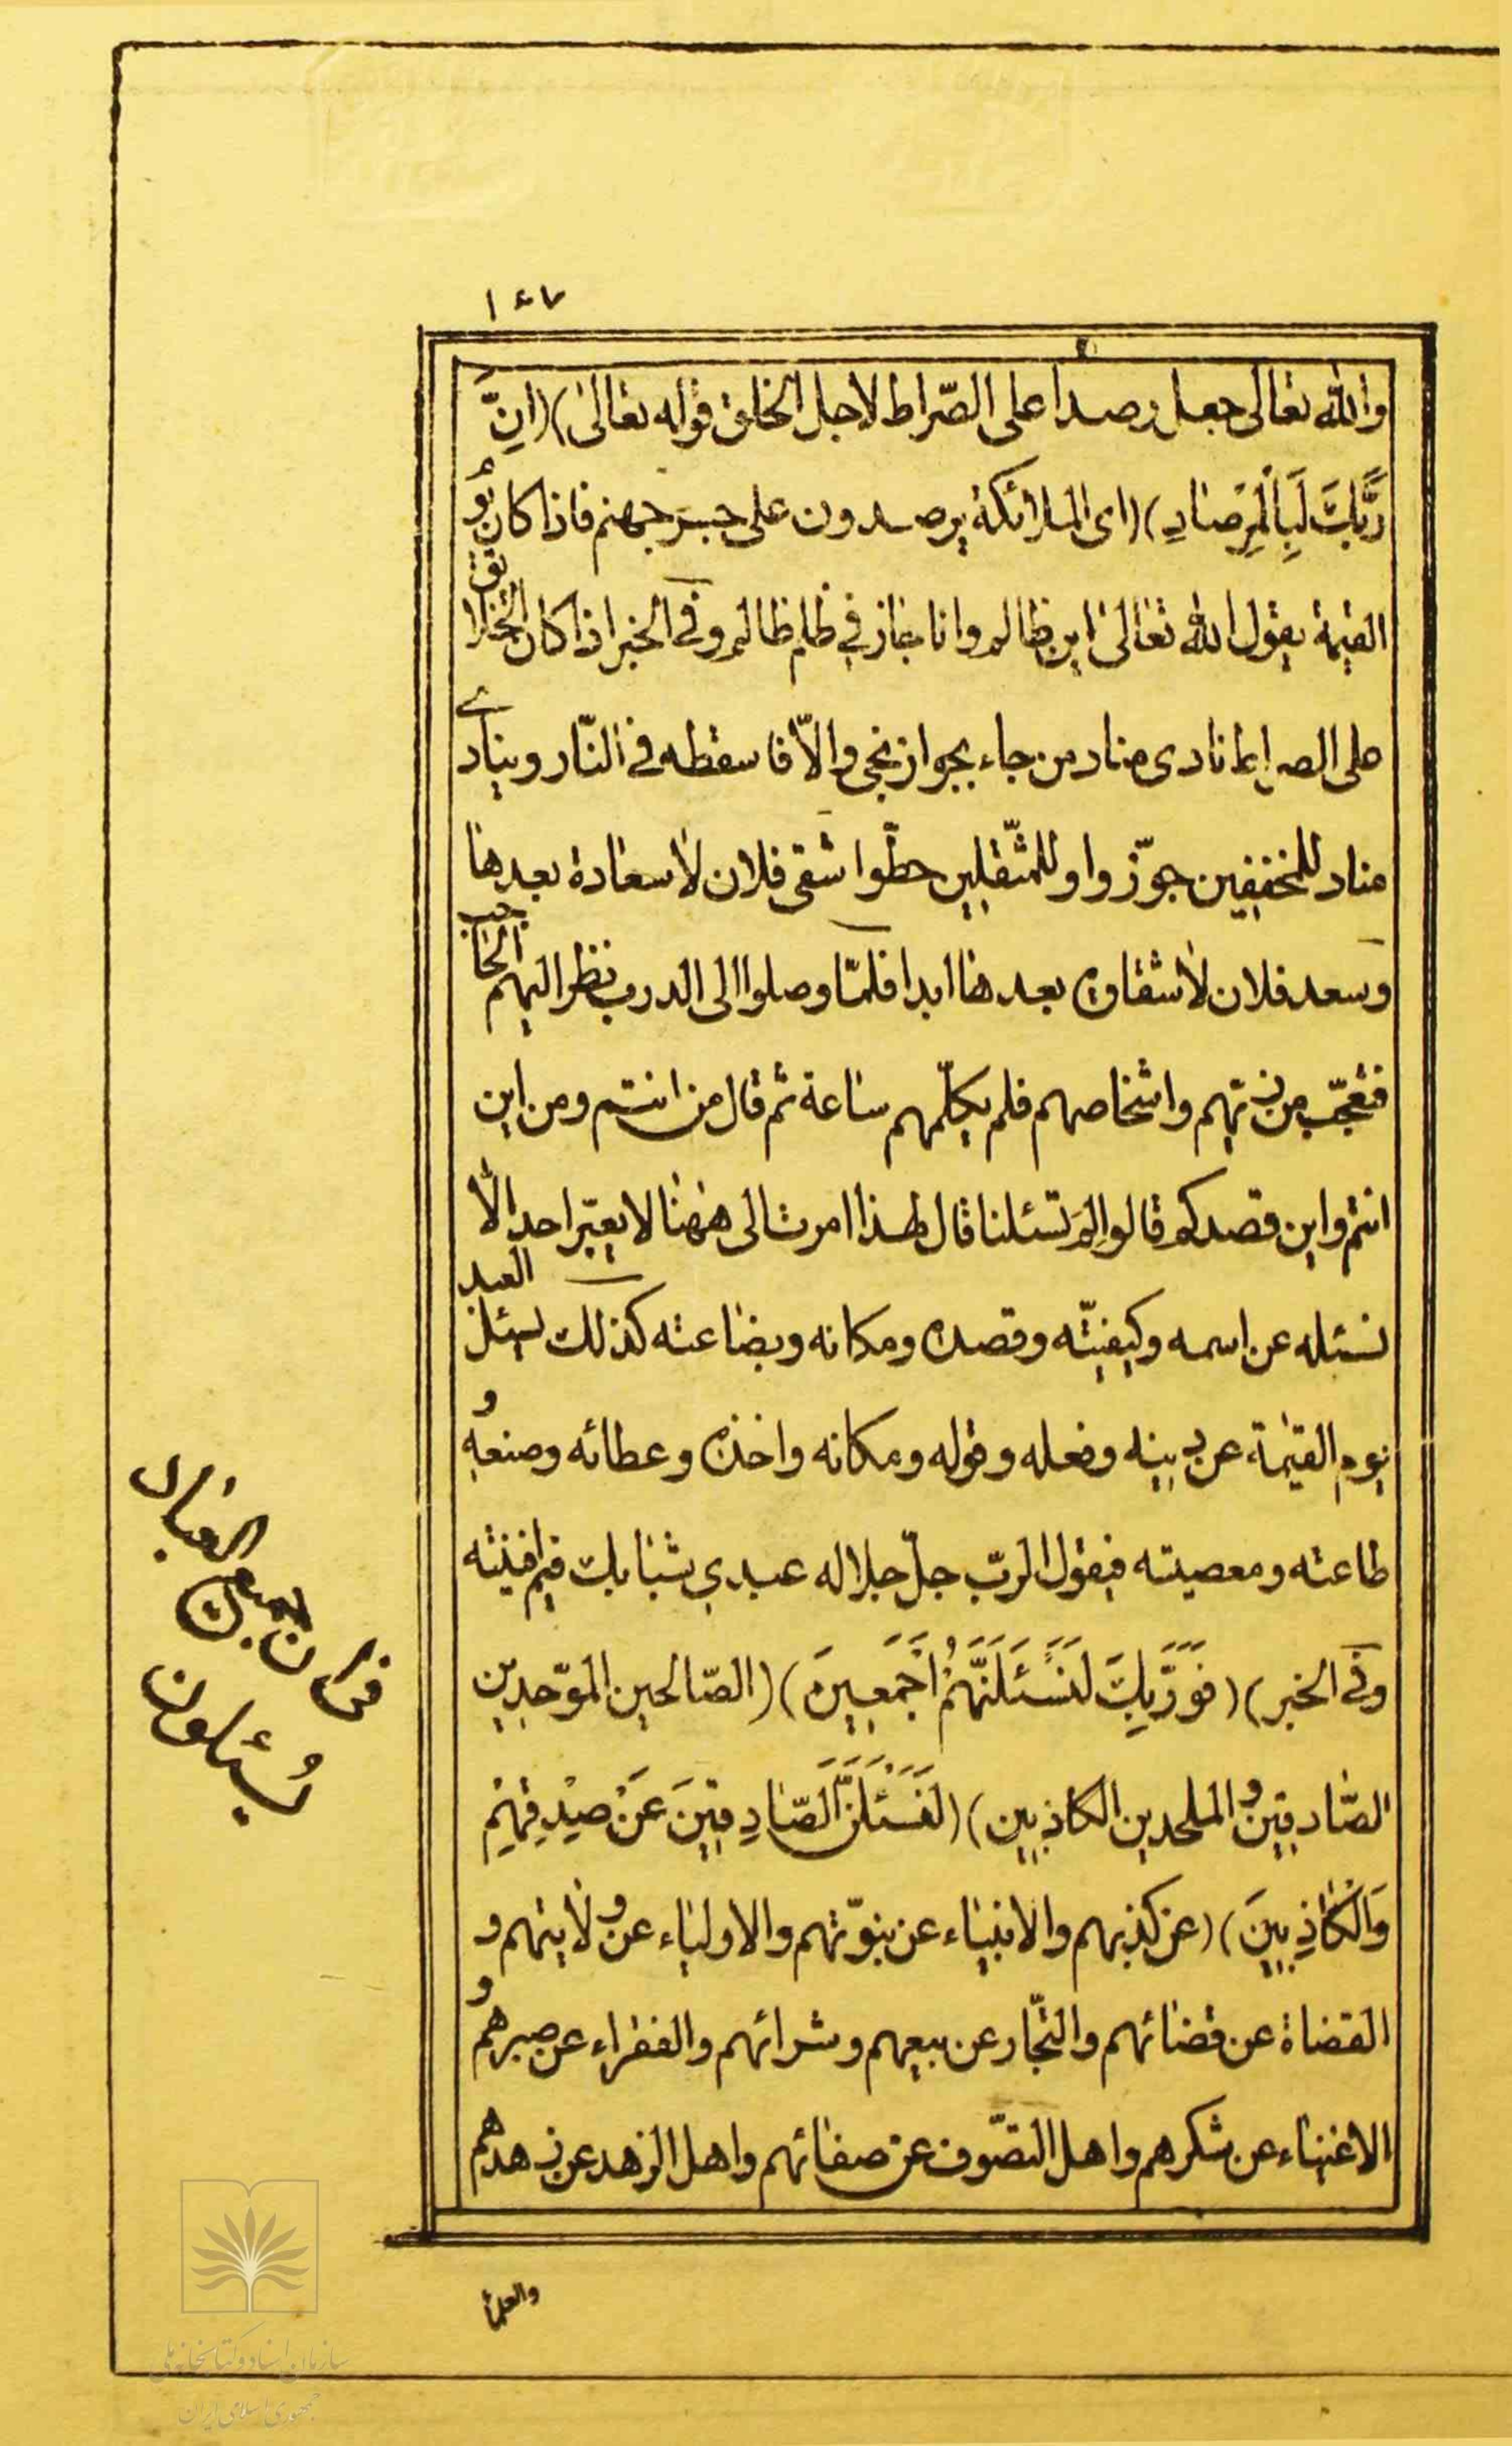 ١٤٧
والله تعالى جعل رصدا على الصّراط لاجل الخلق قوله تعالى) (انَّ
رَبَّكَ لَبِالْمِرْصَادِ) (اى الملائكة يرصدون على جسر جهنم فاذا كان يوم
القيمة يقول الله تعالى اين ظالم وانا مجاز فى ظلم ظالم وفى الخبر اذا كان الخلائق
على الصراط نادى مناد من جاء بجواز نجى والّا فاسقطه فى النّار وينادى
مناد للمخففين جوّزوا وللمثقلين حطّوا شقى فلان لا سعادة بعدها
وسعد فلان لا شقاوة بعدها ابدا فلمّا وصلوا الى الدرب نظر اليهم الحاجب
فتعجّب من زيّهم واشخاصهم فلم يكلّمهم ساعة ثم قال من انتم ومن اين
انتم واين قصدكم قالوا لِمَ تسئلنا قال لهذا امرت الى ههنا لا يعبّر احد الّا
نسئله عن اسمه وكيفيّته وقصده ومكانه وبضاعته كذلك يسئل العبد
يوم القيمة عن دينه وفعله وقوله ومكانه واخذه وعطائه وصنعه و
طاعته ومعصيته فيقول الرب جلّ جلاله عبدى شبابك فيم افنيته
وفى الخبر) (فَوَرَبِّكَ لَنَسْئَلَنَّهُمْ اَجْمَعِينَ) (الصّالحين الموّحدين
الصّادقين و الملحدين الكاذبين) (لَنَسْئَلَنَّ الصَّادِقِينَ عَنْ صِدْقِهِمْ
وَالْكَاذِبِينَ) (عن كذبهم والانبياء عن نبوّتهم والاولياء عن ولايتهم و
القضاة عن قضائهم والتجّار عن بيعهم وشرائهم والفقراء عن صبرهم و
الاغنياء عن شكرهم واهل التصّوف عن صفائهم واهل الزهد عن زهدهم
والعلماء
العباد
يُسئلون
سازمان اسناد و کتابخانه ملی
جمهوری اسلامی ایران